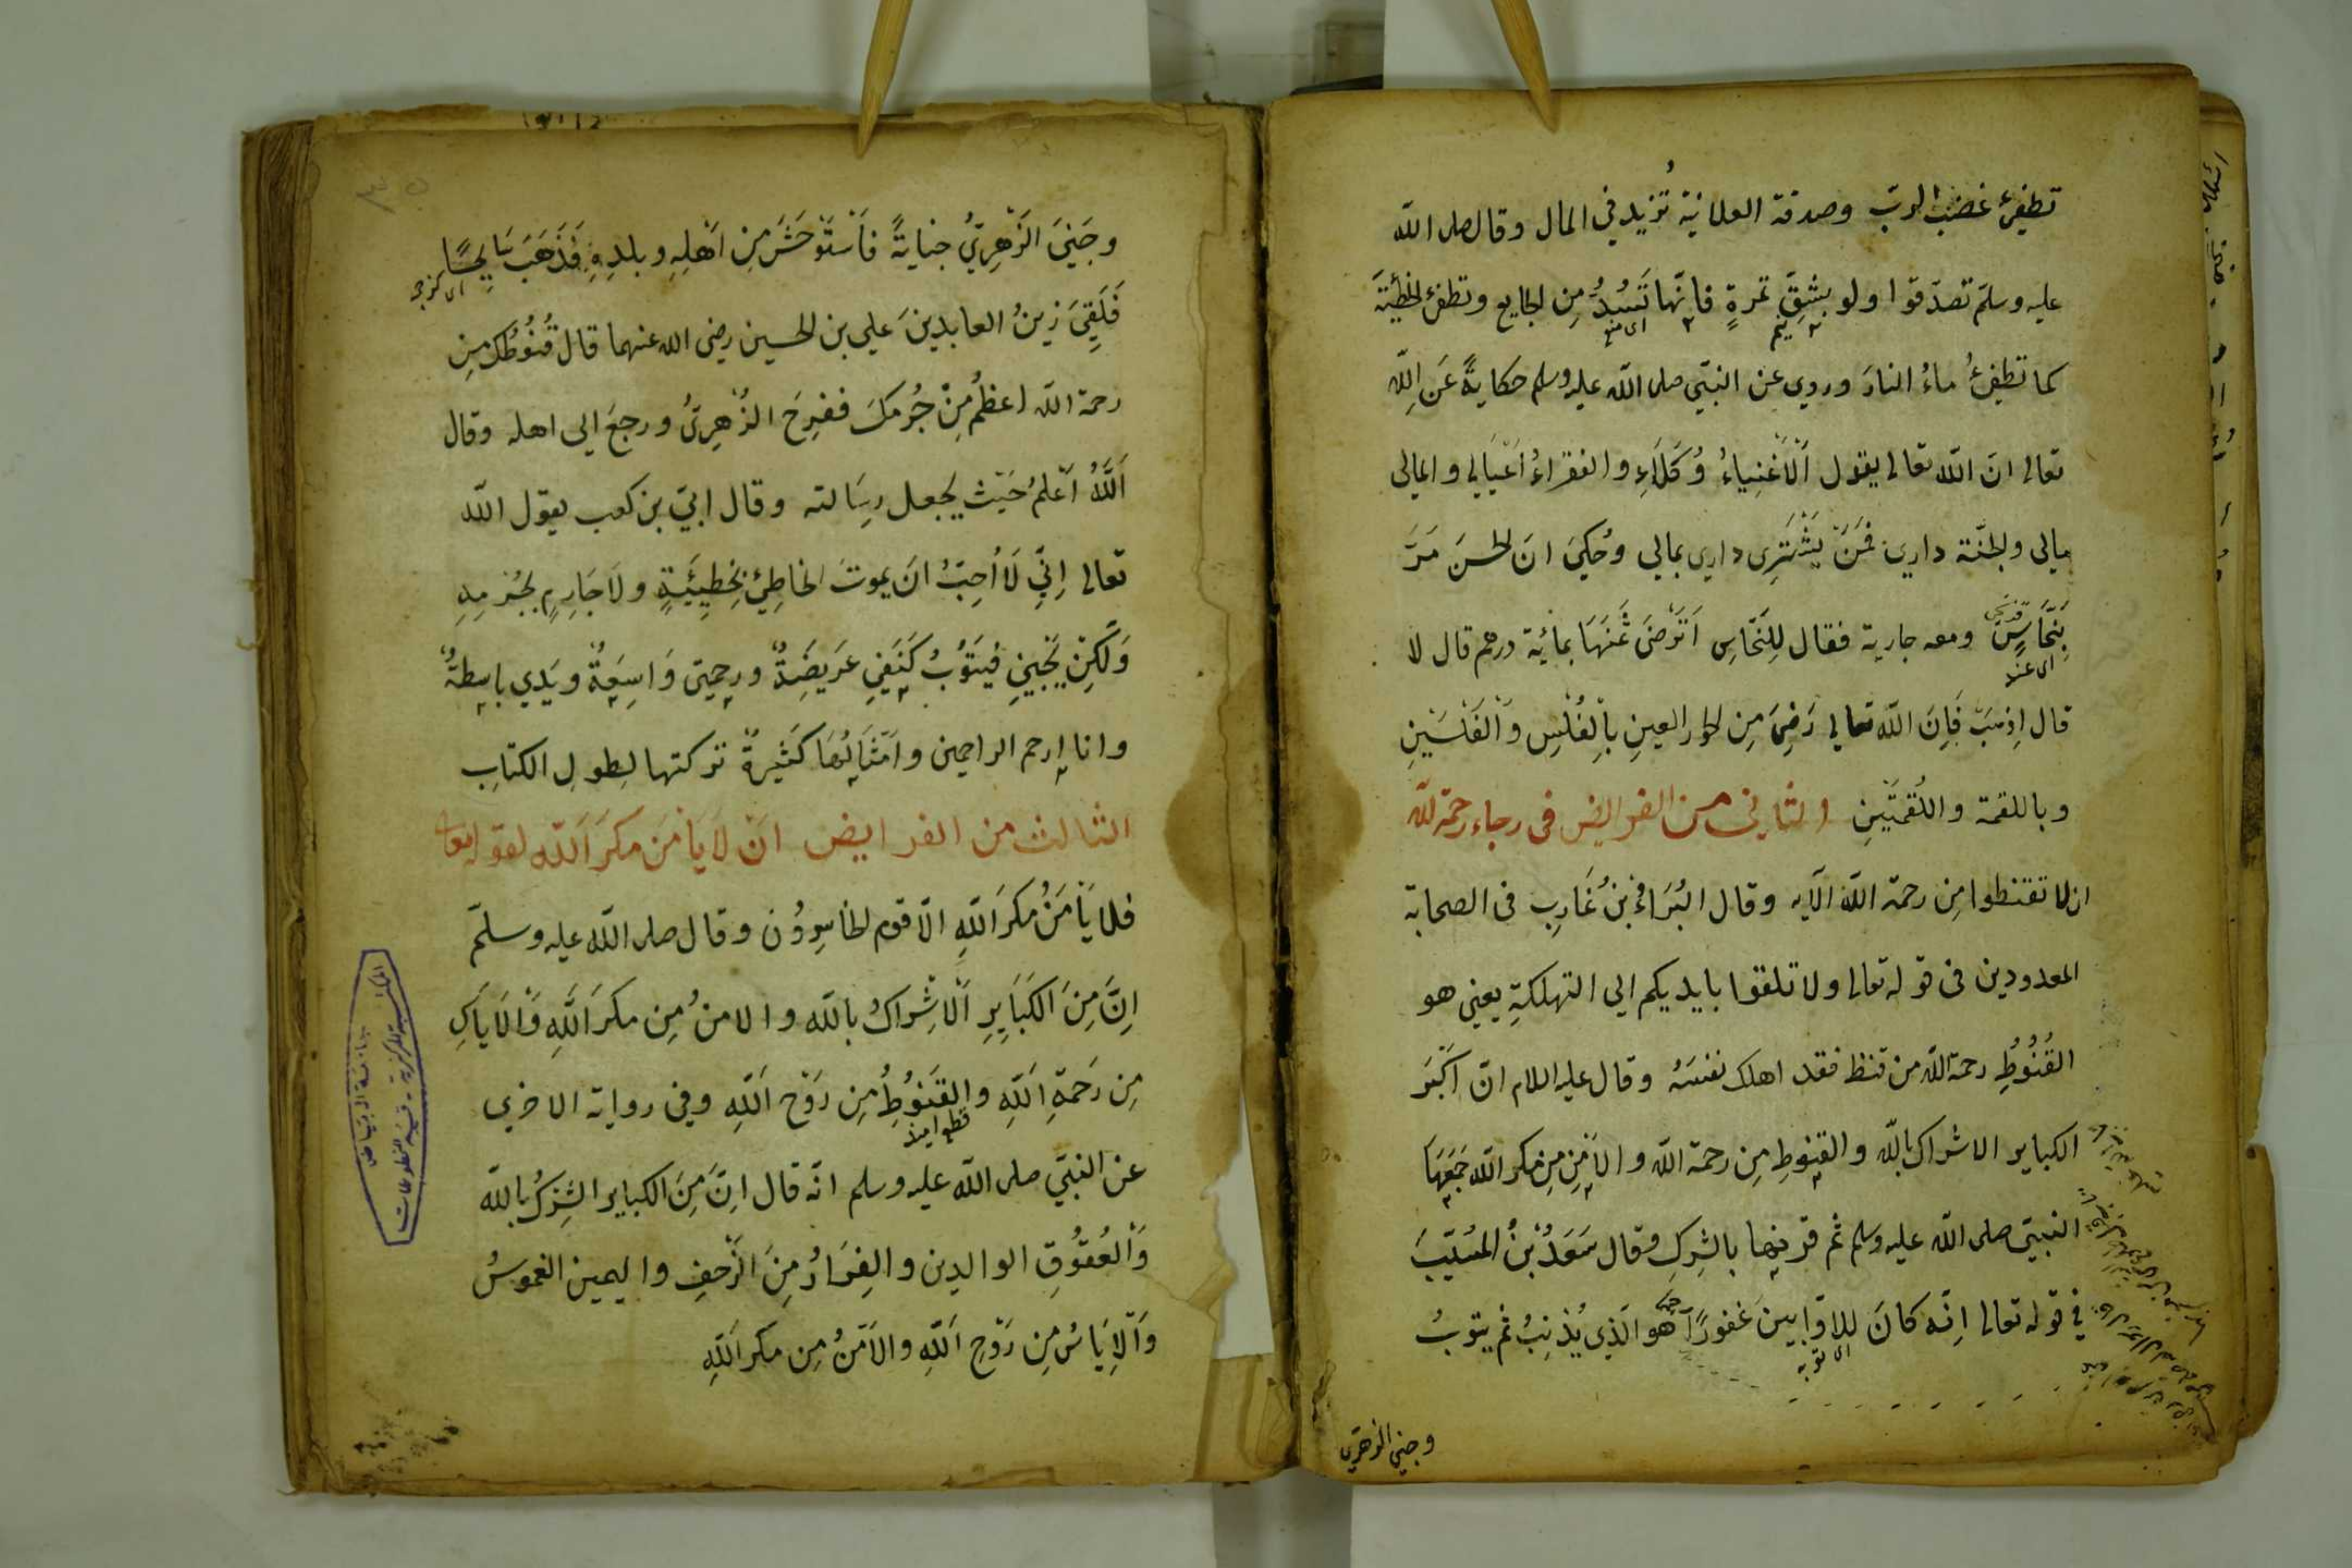 تطفئ غضب الرب وصدقة العلانية تُزيد في المال وقال صلى اللّه
عليه وسلم تصدّقوا ولو بشِقِّ تمرةٍ فانّها تَسُدُّ مِن الجايع وتطفئ الخطيئَةَ
كما تطفِئُ ماءُ النارَ وروي عن النبّي صلى اللّه عليه وسلم حكايةً عَنِ اللّه
تعالى انَ اللّه تعالى يقول اَلاَغْنِياءُ وُكَلَاءِ والفقراءُ اَعْيَالي والمالى
مالى والجنّة داري فمَنْ يَشْتَرِى داري بمالي وحُكيَ انَ الحسنَ مَرَّ
بِنَخَّاسٍ ومعه جارية فقال لِلنَخّاسِ اَتَرْضَى ثَمَنَهَا بمأئة درهم قال لا
اى عند
قال اِذهَبْ فَاِنَ اللّه تعالى رَضِىَ مِن الحور العينِ بِالْفُلْسِ وَالْفَلْسَيْنِ
وباللقمة واللُقمَتَينِ والثاني من الفرايض فى رجاء رحمة للّه
ان لا تقنطوا مِن رحمة اللّه الآيه وقال البُرَاءُ بنُ عَارِب فى الصحابة
المعدودين فى قوله تعالى ولا تلقوا بايديكم الى التهلكةِ يعني هو
القُنُوُطِ رحمة اللّه من قنظ فقد اهلك نفسَهُ وقال عليه السلام انّ اَكْبَرَ
الكباير الاشراك باللّه والقنوط مِن رحمة اللّه والاَمْنِ مِن مكر اللّه جَمَعَهَا
النبيّ صلى اللّه عليه وسلم ثم قرنها بالشِركِ وقال سَعَدُ بْنُ المُسَيّبَ
في قوله تعالى اِنّه كانَ للاوّابينَ غفورًا هو الّذى يُذنِبُ ثم يتوبُ
اى توبه
وجني الزهري
وجَنِىَ الزَهْرِيُّ جنايةً فاَسْتَوْحَشَ مِن اَهْلِهِ وبلدِهِ فَذَهَبَ سَايِحًا
فَلَقِيَ زينُ العابدينَ علي بن الحسين رضى الله عنهما قال قُنُوطُكَ مِن
رحمة اللّه اعظمُ مِنْ جُرمكَ ففرِحَ الزُهْرِىُّ ورجعَ الى اهله وقال
اَللّهُ اَعْلَمُ حَيْث يجعل رِسَالته وقال ابيّ بن كعب يقول اللّه
تعالى اِنِّي لَا اُحِبُّ انَ يموتَ الخاطِئُ بخطِيئَةٍ ولاَ جَارِمٍ بجُرْمِهِ
وَلٰكِنْ يَجِيئ فيَتَوُبُ كَنَفِى عرَيضَةٌ ورحمتى وَاسِعَةٌ ويَدي باسِطةٌ
وانا ارحم الراحمين وامْثَالُهَا كَثِيرَةٌ تركتها لِطولِ الكتابِ
الثالث من الفرايض انْ لَا يَأْمَنَ مكرَ اللّه لقوله تعالى
فلا يَأْمَنُ مكرَ اللّهِ الّا قوم الخاسِرُوُن وقال صلى اللّه عليه وسلّم
اِنَّ مِنَ الكَبَايِرِ اَلْاشِراكُ باللّه والامنُ مِن مكرَ اللّهِ وَالْاَيَاس
مِن رَحَمةِ اللّهِ والقَنوُطِ مِن رَوْح اللّهِ وفى رواية الاخرى
عن النبيّ صلى اللّه عليه وسلم انّه قال انَّ مِنَ الكباير الشِركُ باللّه
وَالعُقوُقِ الوالدين والفِرَارُ مِنَ الزّحفِ واليمين الغموسُ
وَالْاِيَاسُ مِن رَوْحِ اللّهِ والاَمْنُ مِن مكر اللّهِ